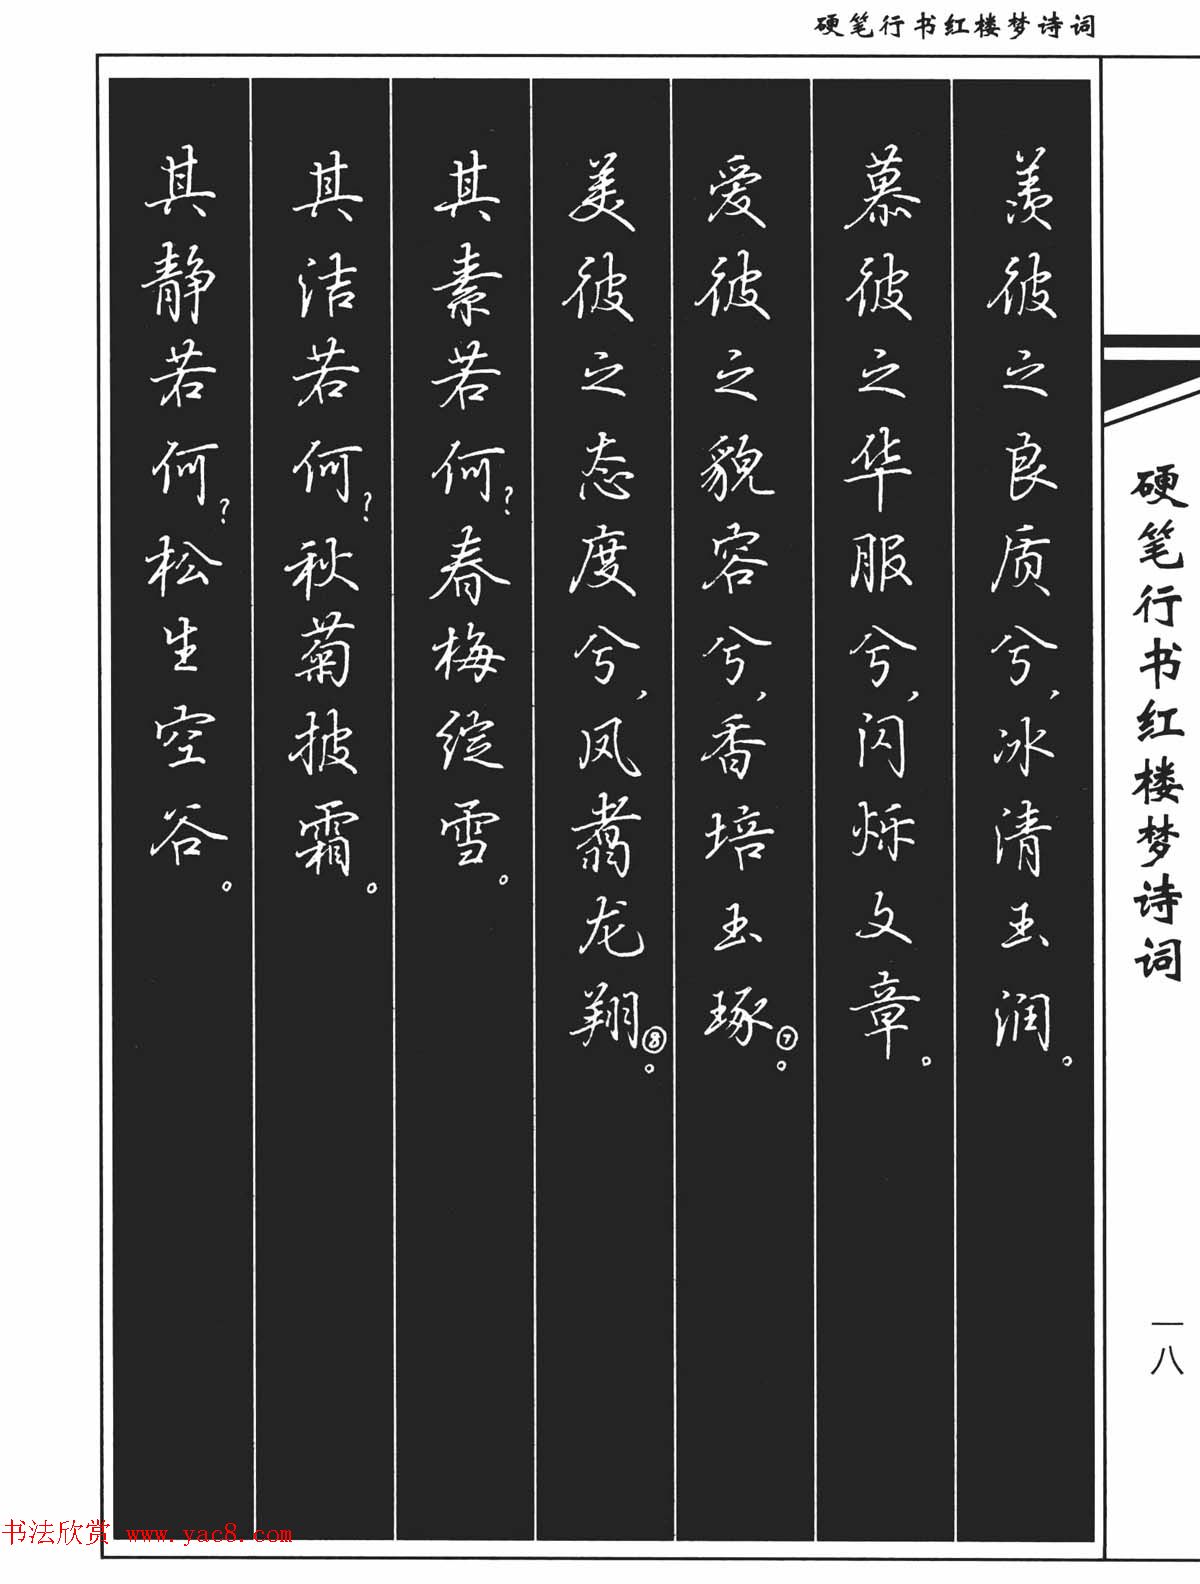 硬笔行书红楼梦诗词
羡彼之良质兮，冰清玉润。
慕彼之华服兮，闪烁文章。
爱彼之貌容兮，香培玉琢⑦。
美彼之态度兮，凤翥龙翔⑧。
其素若何？春梅绽雪。
其洁若何？秋菊披霜。
其静若何？松生空谷。
硬笔行书红楼梦诗词
一八
书法欣赏 www.yac8.com